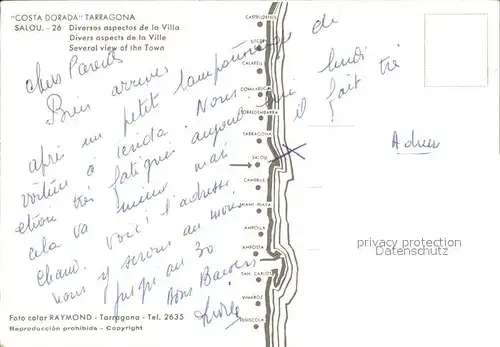 "COSTA DORADA" TARRAGONA
SALOU. - 26 Diversos aspectos de la Villa
Divers aspects de la Ville
Several view of the Town
chers Parents
Bien arrivés
après un petit tamponnage de
voiture à Lerida. Nous
étions très fatigués aujourd'hui lundi
cela va mieux mais il fait très
chaud. Voici l'adresse
nous y serons au moins
jusqu'au 30
Bons Baisers
CASTELLDEFELS
SITGES
CALAFELL
COMARRUGA
TORREDEMBARRA
TARRAGONA
SALOU
CAMBRILS
MIAMI PLAYA
AMPOLLA
AMPOSTA
SAN CARLOS
VINAROZ
PEÑISCOLA
privacy protection
Datenschutz
Foto color RAYMOND - Tarragona - Tel. 2635
Reproducción prohibida - Copyright